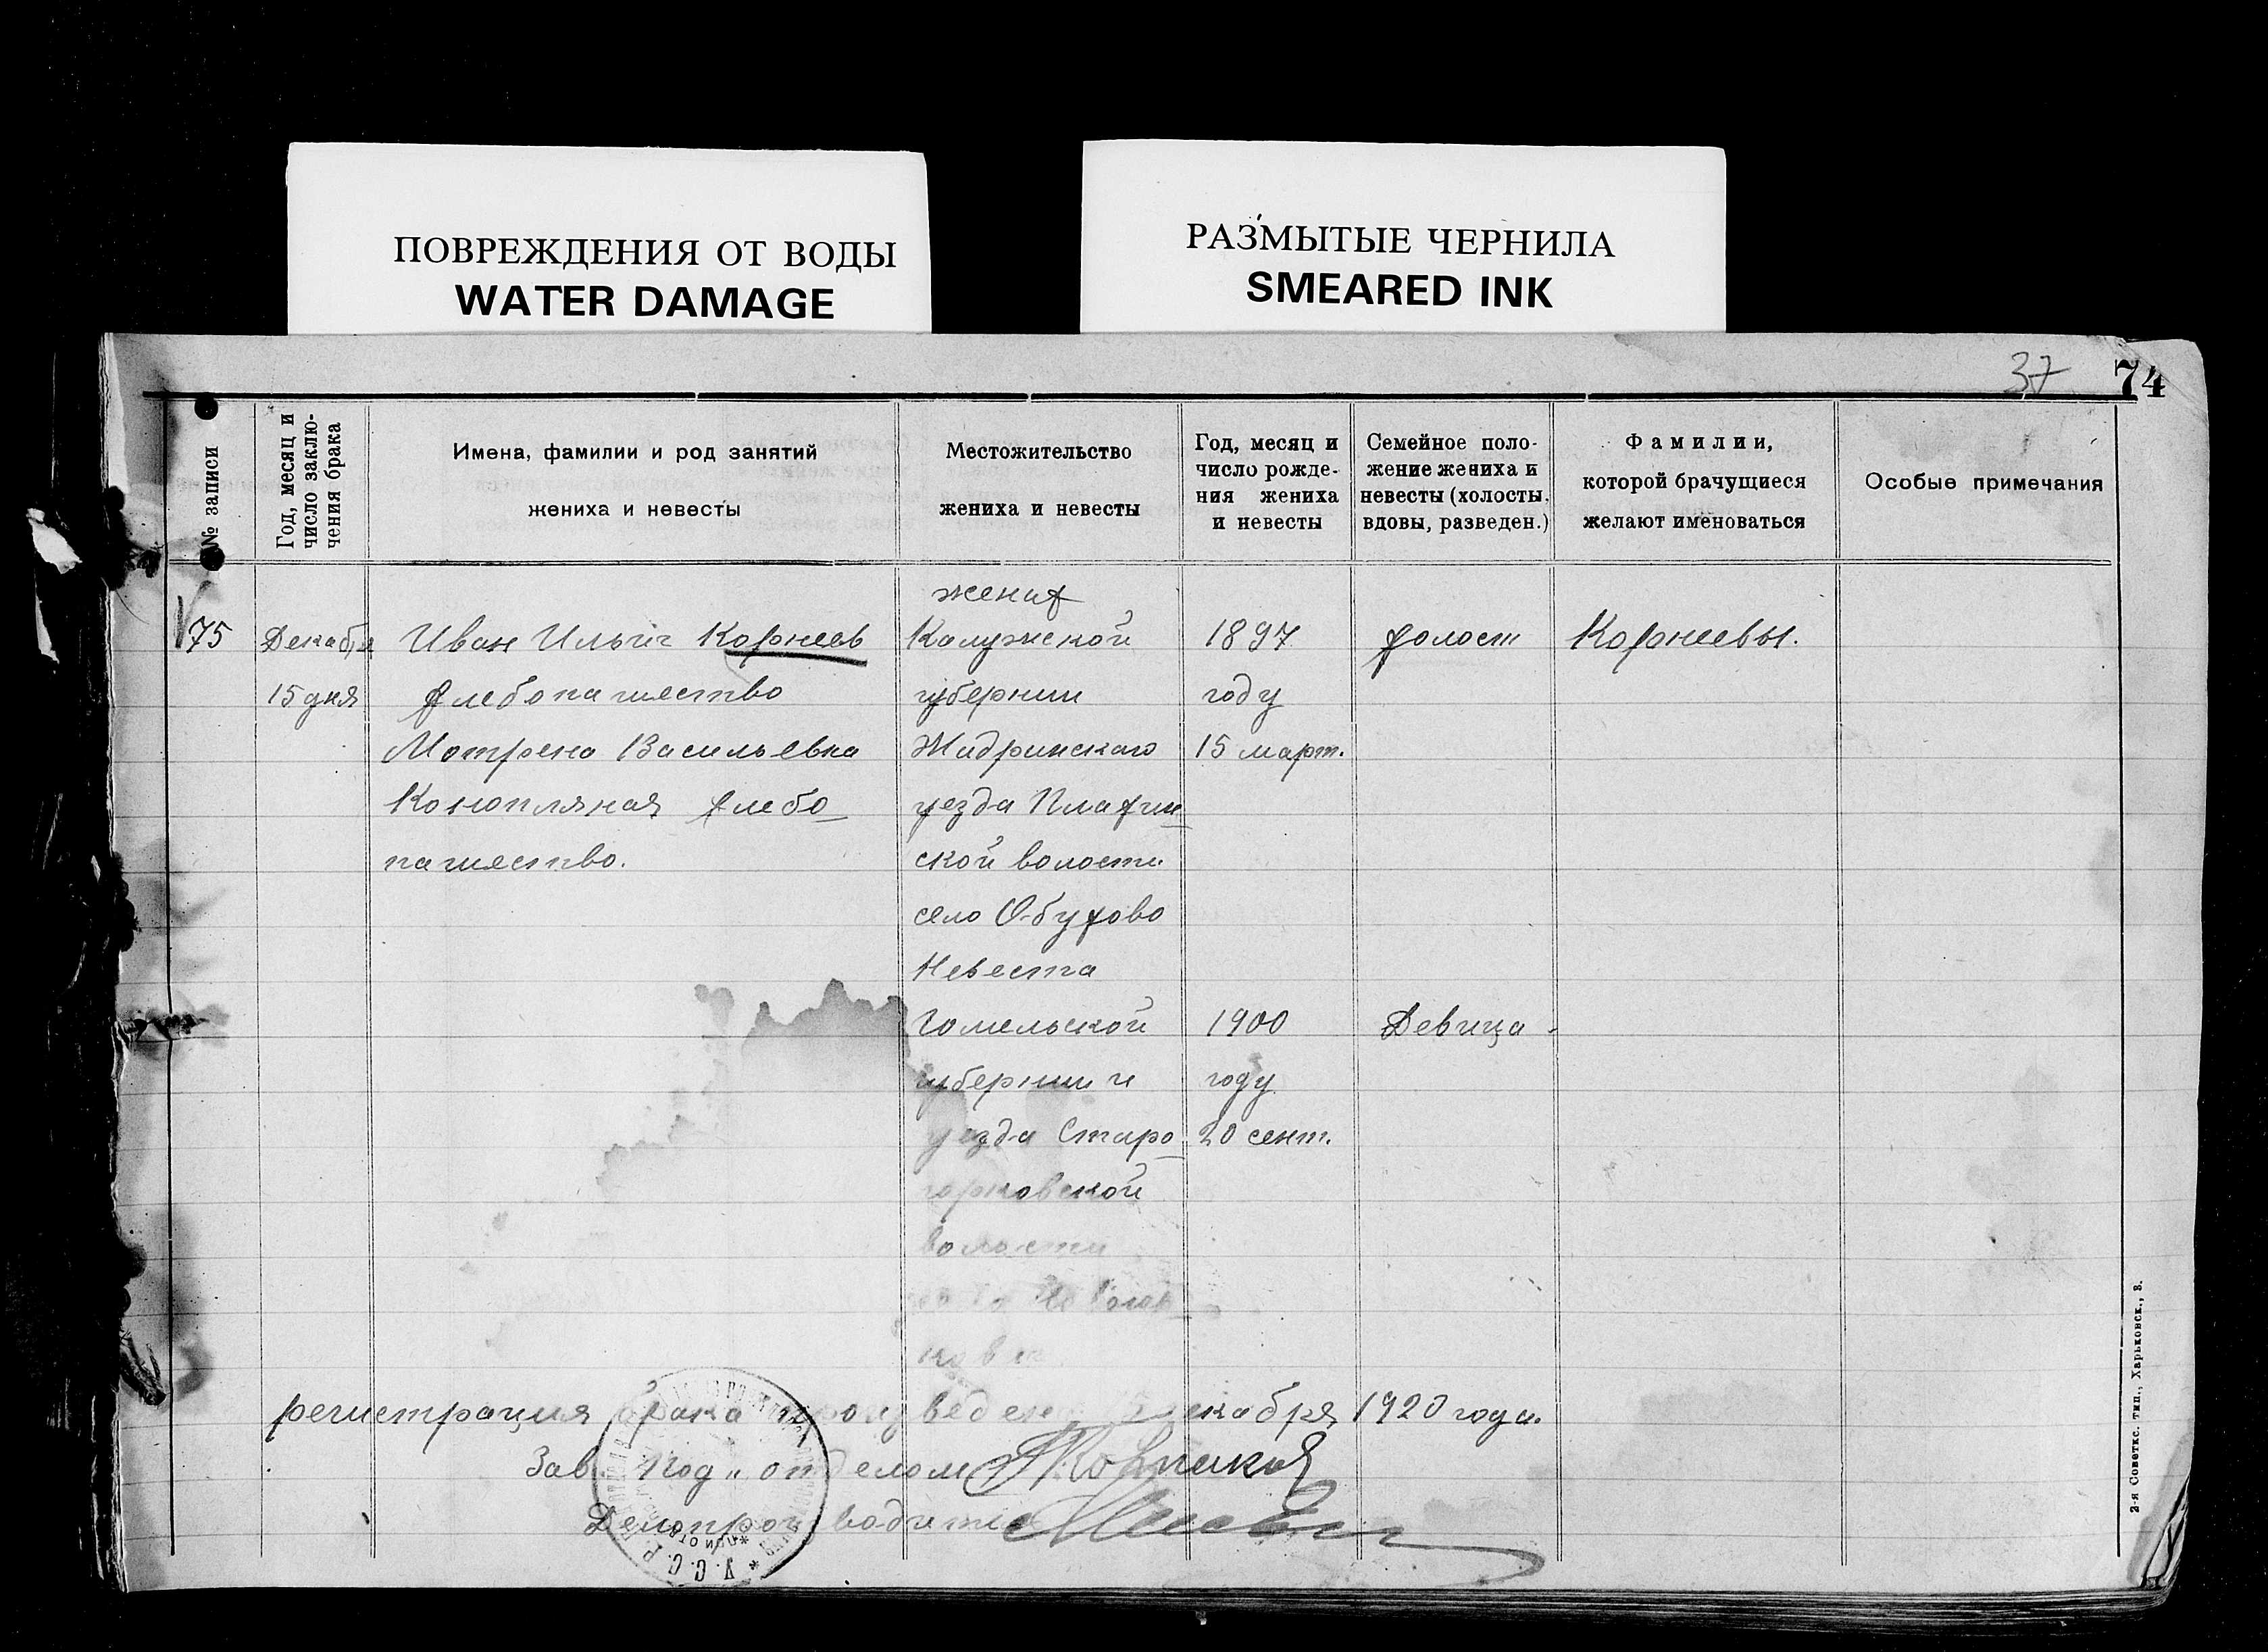 ПОВРЕЖДЕНИЯ ОТ ВОДЫ
WATER DAMAGE
РАЗМЫТЫЕ ЧЕРНИЛА
SMEARED INK
37
74
№ записи
Год, месяц и
число заклю-
чения брака
Имена, фамилии и род занятий
жениха и невесты
Местожительство
жениха и невесты
Год, месяц и
число рожде-
ния жениха
и невесты
Семейное поло-
жение жениха и
невесты (холосты,
вдовы, разведен.)
Фамилии,
которой брачущиеся
желают именоваться
Особые примечания
75
Декабря
15 дня
Иван Ильич Корнеев
хлебопашество
Мотрена Васильевна
Конопляная хлебо
пашество.
жених
Калужской
губернии
Жидринскаго
уезда Плахин
ской волости
село Обухово
Невеста
Гомельской
губернии и
уезда Старо
юрковской
волости
1897
году
15 март.
1900
году
20 сент.
холост
Девица
Корнеевы.
регистрация брака произведена 15 декабря 1920 года.
Зав. "Под" отделом
Делопроизводитель
У.С.С.Р.
2-я Советск. тип., Харьковск., 3.